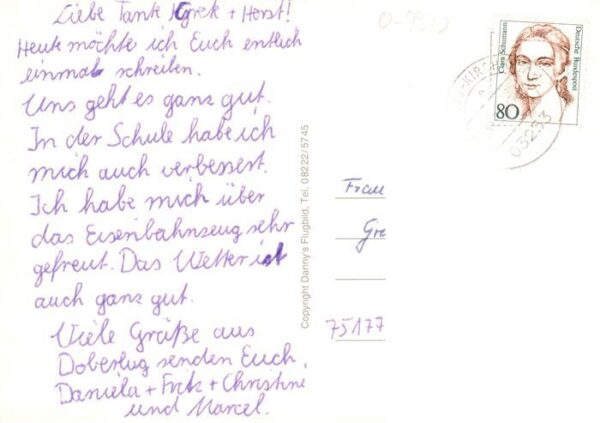 Liebe Tante Grete + Horst!
Heute möchte ich Euch entlich
einmal schreiben.
Uns geht es ganz gut.
In der Schule habe ich
mich auch verbessert.
Ich habe mich über
das Eisenbahnzeug sehr
gefreut. Das Wetter ist
auch ganz gut.
Viele Grüße aus
Doberlug senden Euch
Daniela + Fritz + Christine
und Marcel.
Copyright Danny's Flugbild, Tel. 08222/5745
Clara Schumann
Deutsche Bundespost
80
03253
Frau
Gre
75177